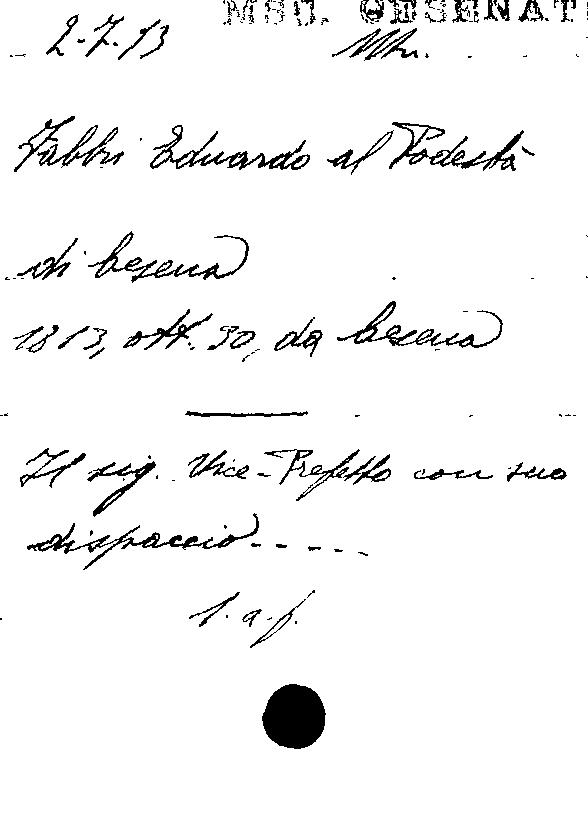 MSU. CESENAT
2-7-13
Fabbri Eduardo al Podestà
di Cesena
1813, ott. 30, da Cesena
Il sig. Vice-Prefetto con suo
dispaccio.....
1. a. f.